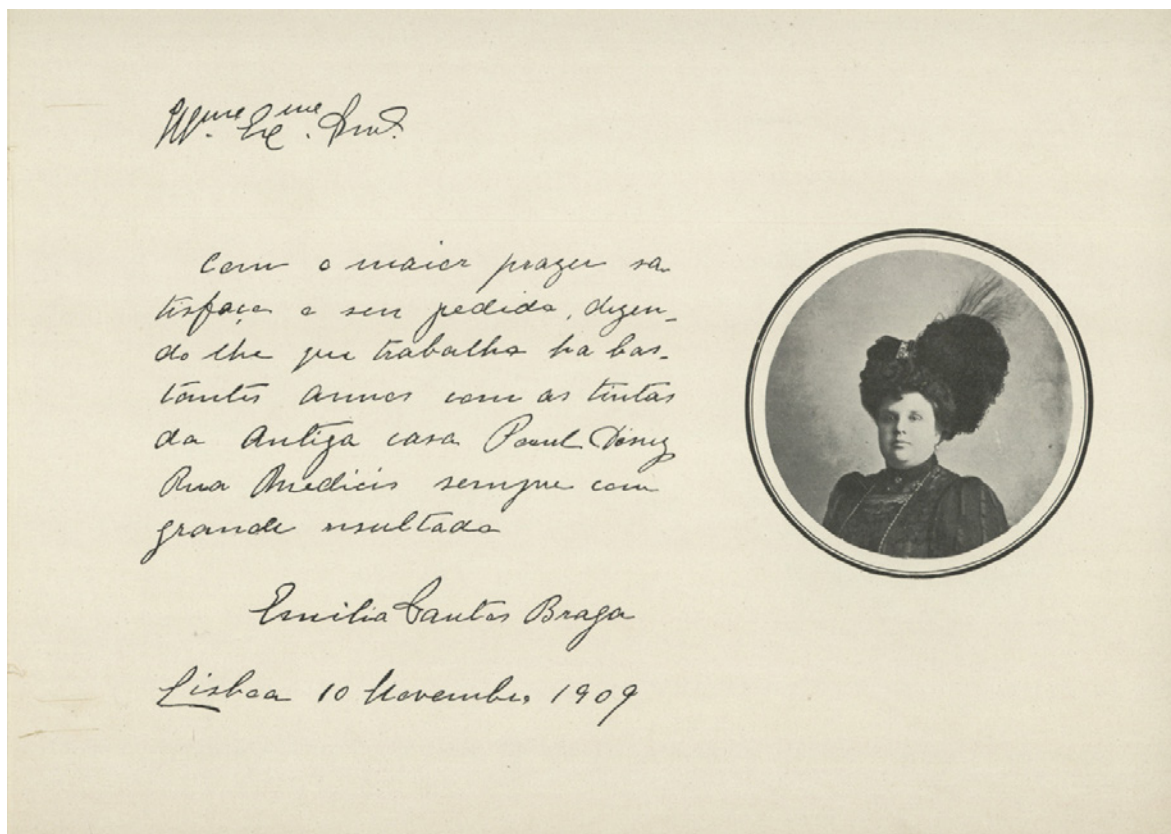 Illmo. Exmo. Snr.
Com o maior prazer sa-
tisfaço o seu pedido, dizen-
do lhe que trabalho ha bas-
tantes annos com as tintas
da Antiga casa Paul Dinez
Rua Medicis sempre com
grande resultado
Emilia Santos Braga
Lisboa 10 Novembro 1909